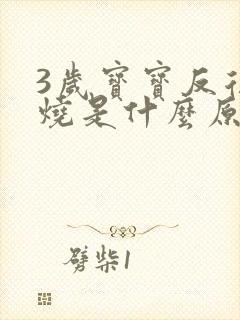 3歲寶寶反
燒是什麼原
劈柴1